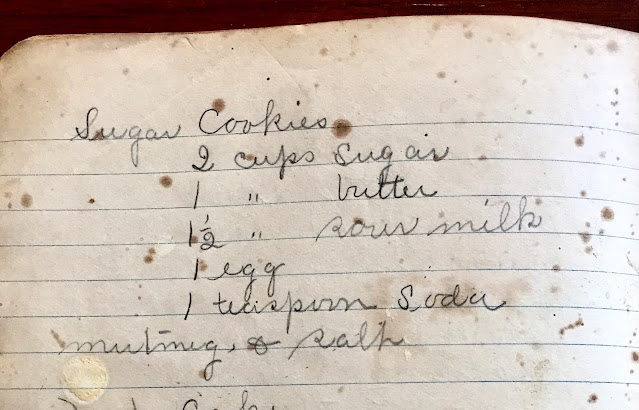 Sugar Cookies
2 cups Sugar
1 " butter
1 1/2 " sour milk
1 egg
1 teaspoon Soda
nutmeg, & salt